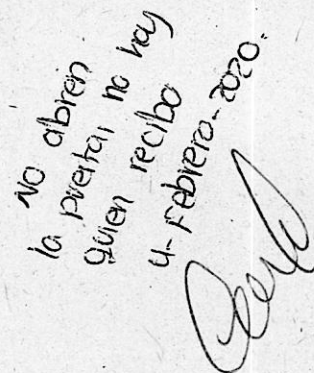 No abren
la puerta, no hay
quien reciba
4-Febrero-2020.